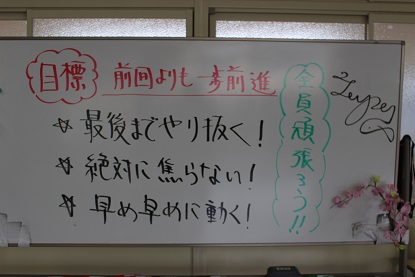 目標 前回よりも一歩前進
☆最後までやり抜く!
☆絶対に焦らない!
☆早め早めに動く!
全員頑張ろう!!